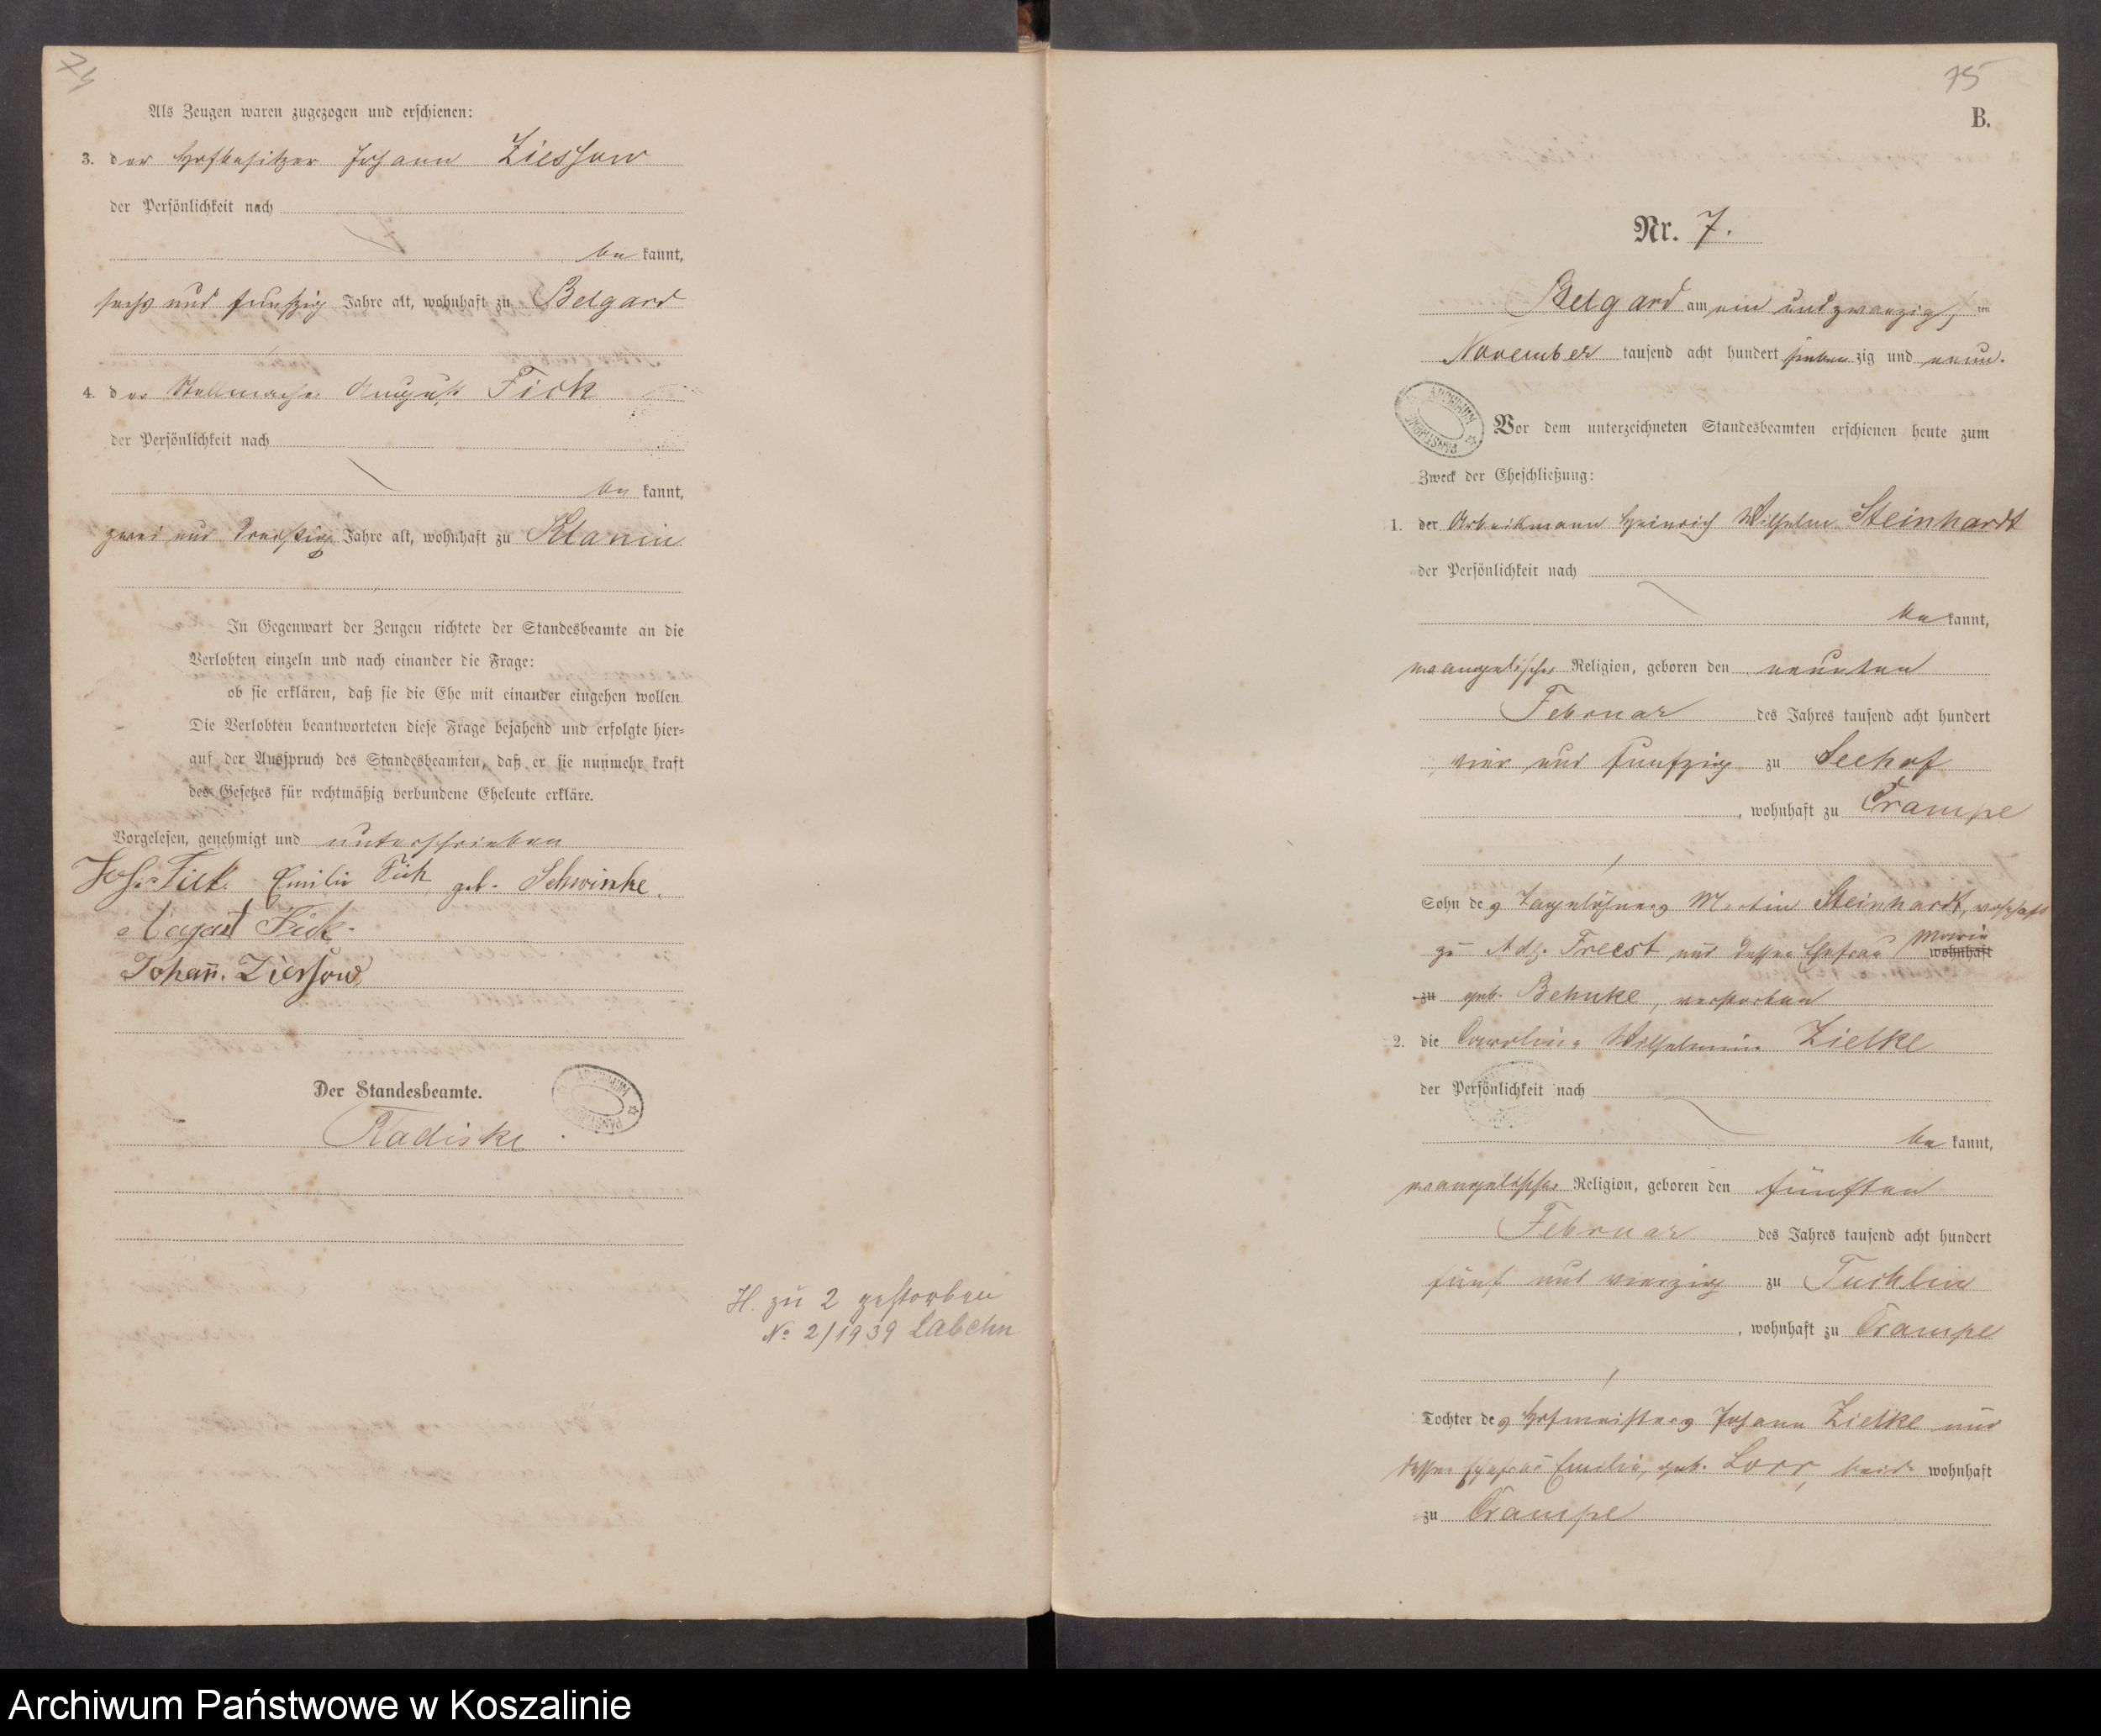 74
Als Zeugen waren zugezogen und erschienen:
3. der Hofbesitzer Johann Ziessow
der Persönlichkeit nach
be kannt,
sechs und funfzig Jahre alt, wohnhaft zu Belgard
4. der Stellmacher August Fick
der Persönlichkeit nach
be kannt,
zwei und dreißig Jahre alt, wohnhaft zu Klannin
In Gegenwart der Zeugen richtete der Standesbeamte an die
Verlobten einzeln und nach einander die Frage:
ob sie erklären, daß sie die Ehe mit einander eingehen wollen.
Die Verlobten beantworteten diese Frage bejahend und erfolgte hier-
auf der Ausspruch des Standesbeamten, daß er sie nunmehr kraft
des Gesetzes für rechtmäßig verbundene Eheleute erkläre.
Vorgelesen, genehmigt und unterschrieben
Joh. Fick. Emilie Fick geb. Schwinke.
August Fick.
Johan̄. Ziessow
Der Standesbeamte.
Radiske.
H. zu 2 gestorben
No 2/1939 Labehn
75
B.
Nr. 7.
Belgard am ein und zwanzigsten
November tausend acht hundert sieben zig und neun.
Vor dem unterzeichneten Standesbeamten erschienen heute zum
Zweck der Eheschließung:
1. der Arbeitsmann Heinrich Wilhelm Steinhardt
der Persönlichkeit nach
be kannt,
evangelischer Religion, geboren den neunten
Februar des Jahres tausend acht hundert
vier und funfzig zu Seehof
, wohnhaft zu Crampe
Sohn des Tagelöhners Martin Steinhardt, wohnhaft
zu Adl. Freest und dessen Ehefrau Marie wohnhaft
zu geb. Behnke, verstorben
2. die Caroline Wilhelmine Zielke
der Persönlichkeit nach
be kannt,
evangelischer Religion, geboren den fünften
Februar des Jahres tausend acht hundert
fünf und vierzig zu Tuchlin
, wohnhaft zu Crampe
Tochter des Hofmeisters Johann Zielke und
dessen Ehefrau Emilie, geb. Lorr, beide wohnhaft
zu Crampe
Archiwum Państwowe w Koszalinie